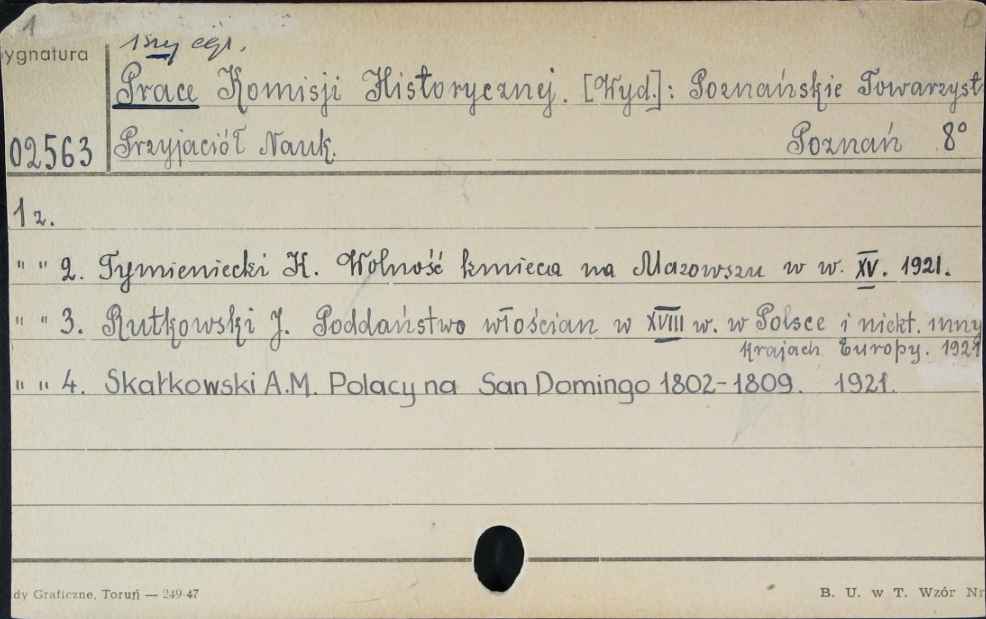 1 D
1szy egz.
ygnatura
Prace Komisji Historycznej. [Wyd.]: Poznańskie Towarzyst
02563 Przyjaciół Nauk. Poznań 8°
1 z.
" " 2. Tymieniecki K. Wolność kmieca na Mazowszu w w. XV. 1921.
" " 3. Rutkowski J. Poddaństwo włościan w XVIII w. w Polsce i niekt. inny
krajach Europy. 1921
" " 4. Skałkowski A.M. Polacy na San Domingo 1802-1809. 1921.
dy Graficzne, Toruń — 249-47 B. U. w T. Wzór Nr